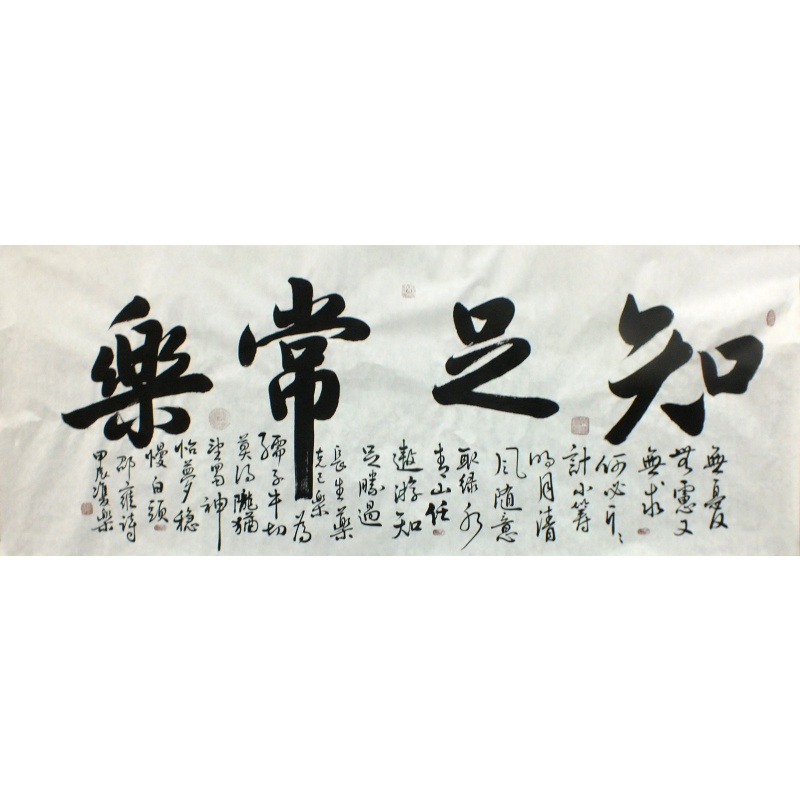 知足常樂
無憂
無慮又
無求
何必斤斤
計小籌
明月清
風随意
取绿水
青山任
遨游知
足勝過
長生藥
克己樂
為
孺子牛切
莫得隴猶
望蜀神
怡夢穩
慢白頭
邵雍詩
甲辰